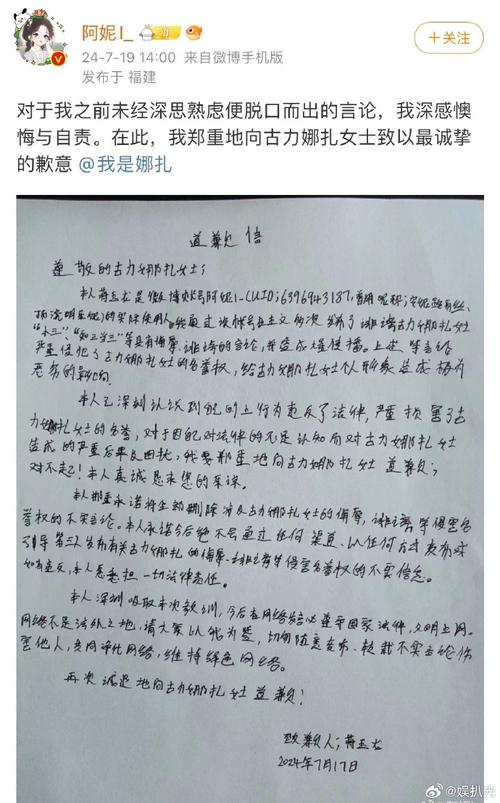 阿妮l_
+关注
24-7-19 14:00 来自微博手机版
发布于 福建
对于我之前未经深思熟虑便脱口而出的言论，我深感懊
悔与自责。在此，我郑重地向古力娜扎女士致以最诚挚
的歉意 @我是娜扎
道歉信
尊敬的古力娜扎女士：
本人蒋五龙是微博账号阿妮l-(UID：6396943187，曾用昵称：
的实际使用人。我通过该账号多次发布了诽谤古力娜扎女士
"小三"、"知三当三"等具有侮辱、诽谤的言论，并造成传播。上述等言论
严重侵犯了古力娜扎女士的名誉权，给古力娜扎女士个人形象造成极为
恶劣的影响。
本人已深刻认识到自己的上行为违反了法律，严重损害了古
力娜扎女士的名誉，对于因自己对法律的不足认知而对古力娜扎女士
造成的严重后果及困扰，我要郑重地向古力娜扎女士道歉，
对不起！本人真诚恳求您的原谅。
本人郑重承诺将全部删除涉及古力娜扎女士的侮辱、诽谤等侵害名
誉权的不实言论。本人承诺今后绝不会通过任何渠道、以任何方式发布或
引导第三人发布有关古力娜扎的侮辱、诽谤等侵害名誉权的不实信息。
如有违反，本人愿意承担一切法律责任。
本人深刻吸取本次教训，今后在网络务必遵守国家法律，文明上网。
网络不是法外之地，请大家以我为鉴，切勿随意发布、转载不实言论伤
害他人，共同净化网络，维持绿色网络。
再次诚恳地向古力娜扎女士道歉！
致歉人：蒋五龙
2024年7月17日
@娱扒